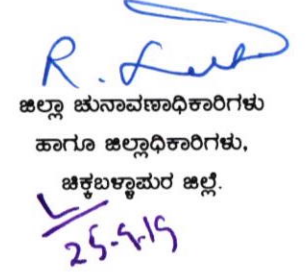 ಜಿಲ್ಲಾ ಚುನಾವಣಾಧಿಕಾರಿಗಳು
ಹಾಗೂ ಜಿಲ್ಲಾಧಿಕಾರಿಗಳು,
ಚಿಕ್ಕಬಳ್ಳಾಪುರ ಜಿಲ್ಲೆ.